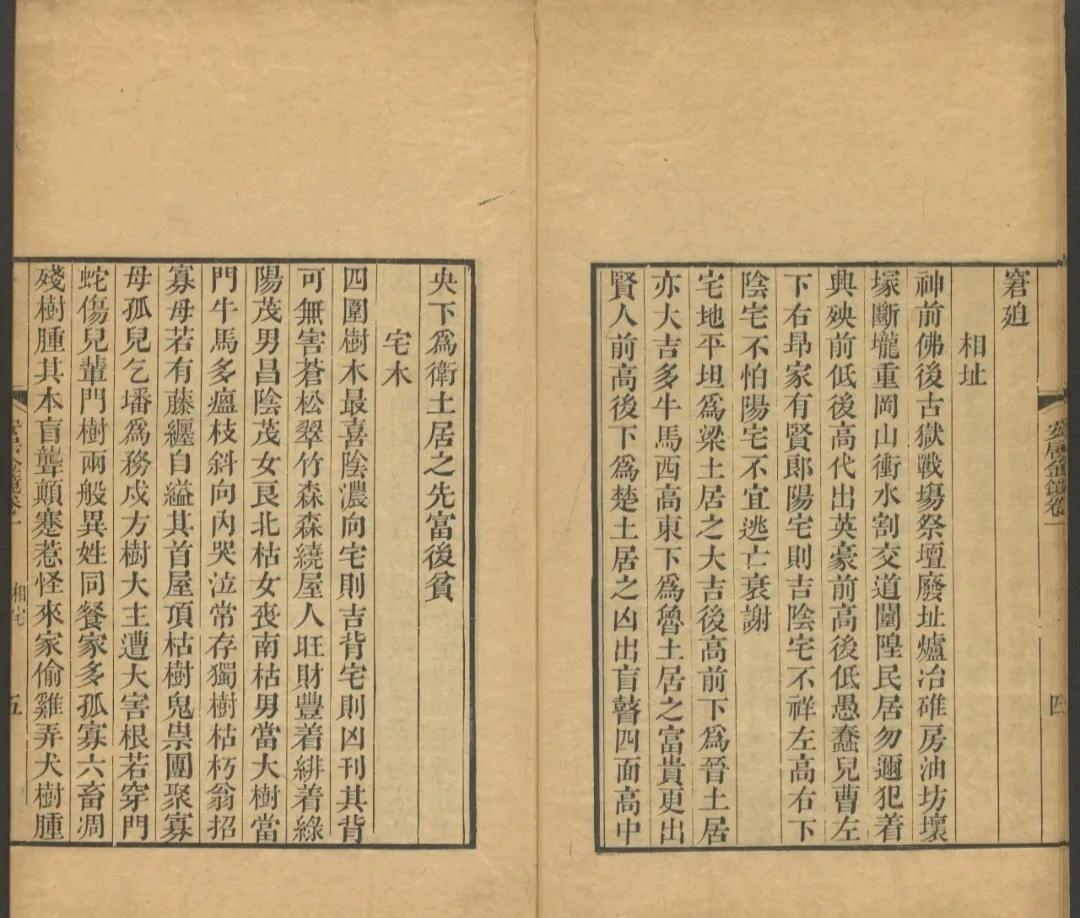 窘廹
相址
神前佛後古獄戰塲祭壇廢址爐冶碓房油坊壞
塚斷壠重岡山衝水割交道闉隍民居勿邇犯着
典殃前低後高代出英豪前高後低愚蠢兒曹左
下右昻家有賢郎陽宅則吉陰宅不祥左高右下
陰宅不怕陽宅不宜逃亡衰謝
宅地平坦爲梁土居之大吉後高前下爲晉土居
亦大吉多牛馬西高東下爲魯土居之富貴更出
賢人前高後下爲楚土居之凶出盲瞽四面高中
央下爲衛土居之先富後貧
宅木
四圍樹木最喜陰濃向宅則吉背宅則凶刊其背
可無害蒼松翠竹森森繞屋人旺財豐着緋着綠
陽茂男昌陰茂女良北枯女喪南枯男當大樹當
門牛馬多瘟枝斜向內哭泣常存獨樹枯朽翁招
寡母若有藤纏自縊其首屋頂枯樹鬼祟團聚寡
母孤兒乞墦爲務戍方樹大主遭大害根若穿門
蛇傷兒輩門樹兩般異姓同餐家多孤寡六畜凋
殘樹腫其本盲聾顛蹇惹怪來家偷雞弄犬樹腫
相宅
五